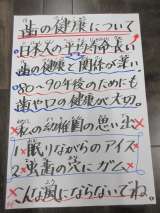 歯の健康について
日本人の平均寿命長い
歯の健康と関係が深い
80〜90年後のためにも
歯や口の健康が大切。
私の幼稚園の思い出
1 眠りながらのアイス
2 虫歯の穴にガム
こんな風にならないでね